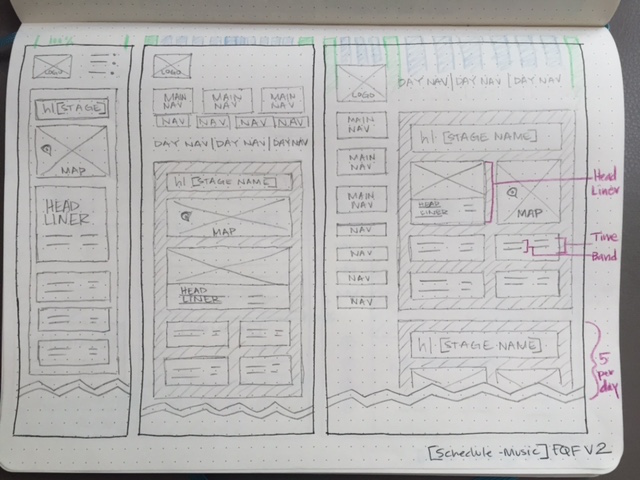 100%
LOGO
h1 [STAGE]
MAP
HEAD
LINER
LOGO
MAIN
NAV
MAIN
NAV
MAIN
NAV
NAV
NAV
NAV
NAV
DAY NAV|DAY NAV|DAY NAV
h1 [STAGE NAME]
MAP
HEAD
LINER
LOGO
DAY NAV|DAY NAV|DAY NAV
MAIN
NAV
MAIN
NAV
MAIN
NAV
NAV
NAV
NAV
NAV
h1 [STAGE NAME]
HEAD
LINER
MAP
h1 [STAGE NAME]
Head
Liner
Time
Band
5
per
day
[Schedule - Music] FQF V2